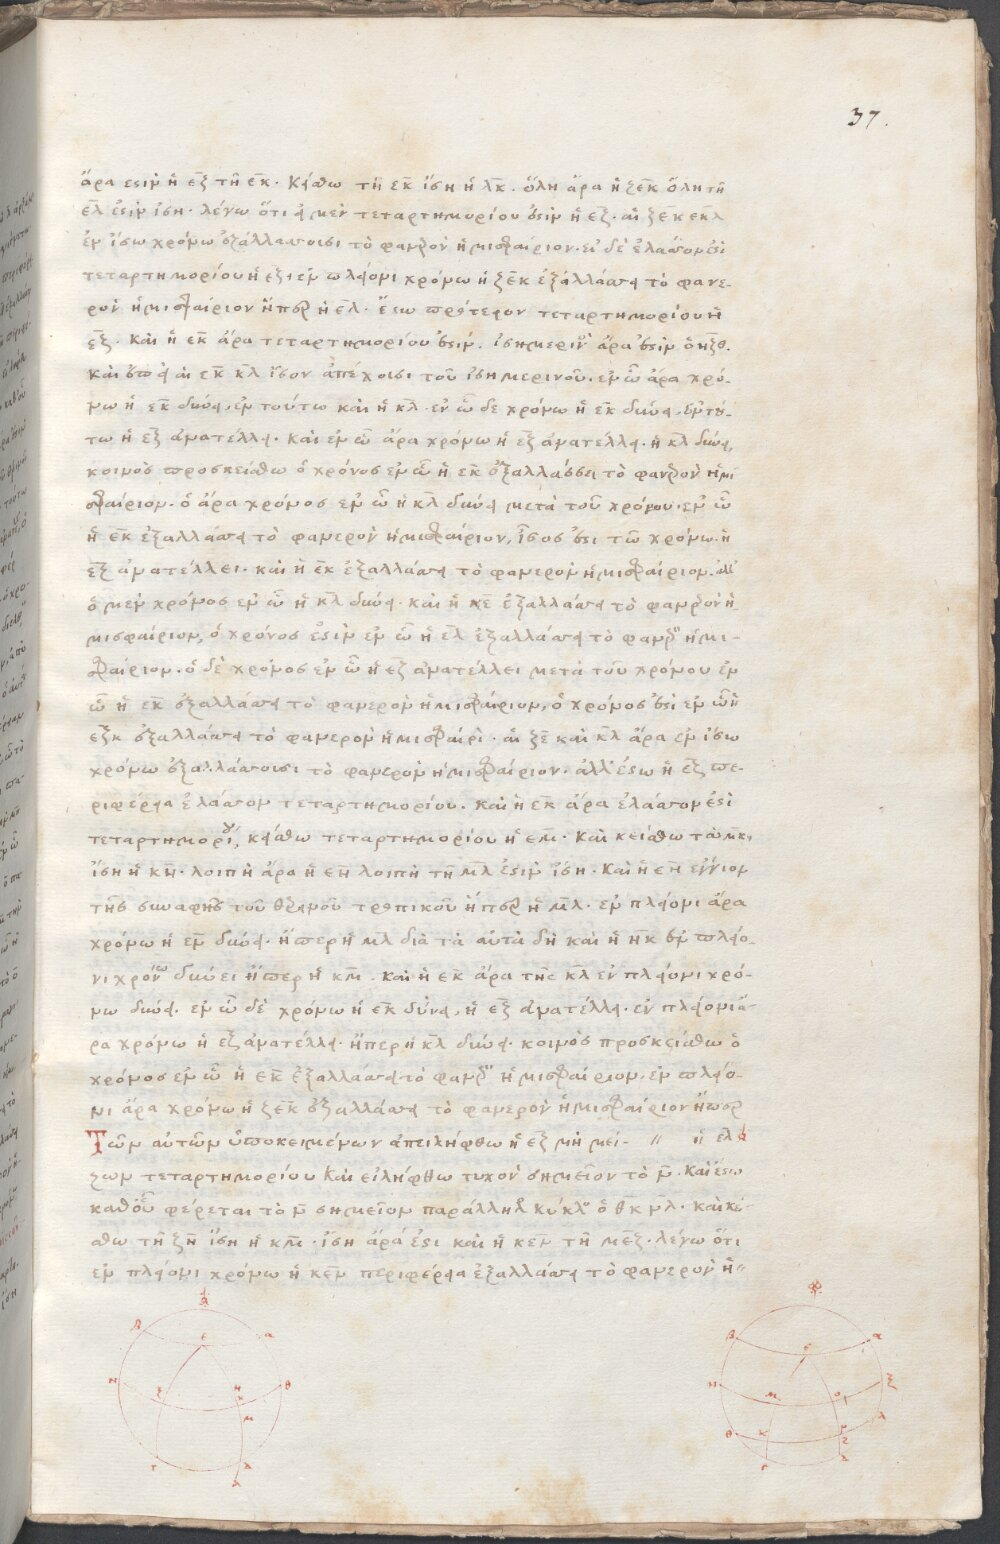 37.
ἄρα ἐστὶν ἡ εξ τῆ εκ. κείσθω τῆ εκ ἴση ἡ λκ. ὅλη ἄρα ἡ ξεκ ὅλη τῆ
ελ ἐστὶν ἴση. λέγω ὅτι εἰ μὲν τεταρτημορίου ἐστὶν ἡ εξ. αἱ ξεκ εκλ
ἐν ἴσω χρόνω ἐξαλλάσσουσι τὸ φανερὸν ἡμισφαίριον. εἰ δὲ ἐλασσόν ἐστι
τεταρτημορίου ἡ εξ, ἐν πλείονι χρόνω ἡ ξεκ ἐξαλλάσσει τὸ φανε-
ρὸν ἡμισφαίριον ἤπερ ἡ ελ. ἔστω πρότερον τεταρτημορίου ἡ
εξ. καὶ ἡ εκ ἄρα τεταρτημορίου ἐστίν. ἰσημερινὸς ἄρα ἐστὶν ὁ ηξθ.
καὶ αἱ εκ κλ ἴσον ἀπέχουσι τοῦ ἰσημερινοῦ. ἐν ὧ ἄρα χρό-
νω ἡ εκ δύνει, ἐν τούτω καὶ ἡ κλ. ἐν ὧ δὲ χρόνω ἡ εκ δύνει, ἐν τού-
τω ἡ εξ ἀνατέλλει. καὶ ἐν ὧ ἄρα χρόνω ἡ εξ ἀνατέλλει. ἡ κλ δύνει,
κοινὸς προσκείσθω ὁ χρόνος ἐν ὧ ἡ εκ ἐξαλλάσσει τὸ φανερὸν ἡμι
σφαίριον. ὁ ἄρα χρόνος ἐν ὧ ἡ κλ δύνει μετὰ τοῦ χρόνου, ἐν ὧ
ἡ εκ ἐξαλλάσσει τὸ φανερὸν ἡμισφαίριον, ἴσος ἐστὶ τῶ χρόνω. ἡ
εξ ἀνατέλλει. καὶ ἡ εκ ἐξαλλάσσει τὸ φανερὸν ἡμισφαίριον. ἀλλ'
ὁ μὲν χρόνος ἐν ὧ ἡ κλ δύνει. καὶ ἡ κε ἐξαλλάσσει τὸ φανερὸν ἡ-
μισφαίριον, ὁ χρόνος ἐστὶν ἐν ὧ ἡ ελ ἐξαλλάσσει τὸ φανερὸν ἡμι-
σφαίριον. ὁ δὲ χρόνος ἐν ὧ ἡ εξ ἀνατέλλει μετὰ τοῦ χρόνου ἐν
ὧ ἡ εκ ἐξαλλάσσει τὸ φανερὸν ἡμισφαίριον, ὁ χρόνος ἐστὶ ἐν ὧ ἡ
εξκ ἐξαλλάσσει τὸ φανερὸν ἡμισφαίρι. αἱ ξε καὶ κλ ἄρα ἐν ἴσω
χρόνω ἐξαλλάσσουσι τὸ φανερὸν ἡμισφαίριον. ἀλλ' ἔστω ἡ εξ πε-
ριφέρεια ἐλάσσον τεταρτημορίου. καὶ ἡ εκ ἄρα ἐλάσσον ἐστὶ
τεταρτημορίου, κείσθω τεταρτημορίου ἡ εμ. καὶ κείσθω τῶ μκ,
ἴση ἡ κν. λοιπὴ ἄρα ἡ εν λοιπῆ τῆ νλ ἐστὶν ἴση. καὶ ἡ εν ἔγγιον
τῆς συναφῆς τοῦ θερινοῦ τροπικοῦ ἤπερ ἡ νλ. ἐν πλείονι ἄρα
χρόνω ἡ εν δύνει. ἤπερ ἡ νλ διὰ τὰ αὐτὰ δὴ καὶ ἡ νκ ἐν πλείο-
νι χρόνω δύνει ἤπερ ἡ κμ. καὶ ἡ εκ ἄρα τῆς κλ ἐν πλείονι χρό-
νω δύνει. ἐν ὧ δὲ χρόνω ἡ εκ δύνει, ἡ εξ ἀνατέλλει. ἐν πλείονι ἄ-
ρα χρόνω ἡ εξ ἀνατέλλει. ἤπερ ἡ κλ δύνει. κοινὸς προσκείσθω ὁ
χρόνος ἐν ὧ ἡ εκ ἐξαλλάσσει τὸ φανερὸν ἡμισφαίριον, ἐν πλείο-
νι ἄρα χρόνω ἡ ξεκ ἐξαλλάσσει τὸ φανερὸν ἡμισφαίριον ἤπερ
ἡ ελ
Τῶν αὐτῶν ὑποκειμένων ἀπειλήφθω ἡ εξ μὴ μεί-
ζων τεταρτημορίου καὶ εἰλήφθω τυχὸν σημεῖον τὸ ν. καὶ ἔστω
καθ' οὗ φέρεται τὸ ν σημεῖον παράλληλος κύκλος ὁ θκνλ. καὶ κεί-
σθω τῆ ξν ἴση ἡ κμ. ἴση ἄρα ἐστι καὶ ἡ κεν τῆ μεξ. λέγω ὅτι
ἐν πλείονι χρόνω ἡ κεν περιφέρεια ἐξαλλάσσει τὸ φανερὸν ἡ